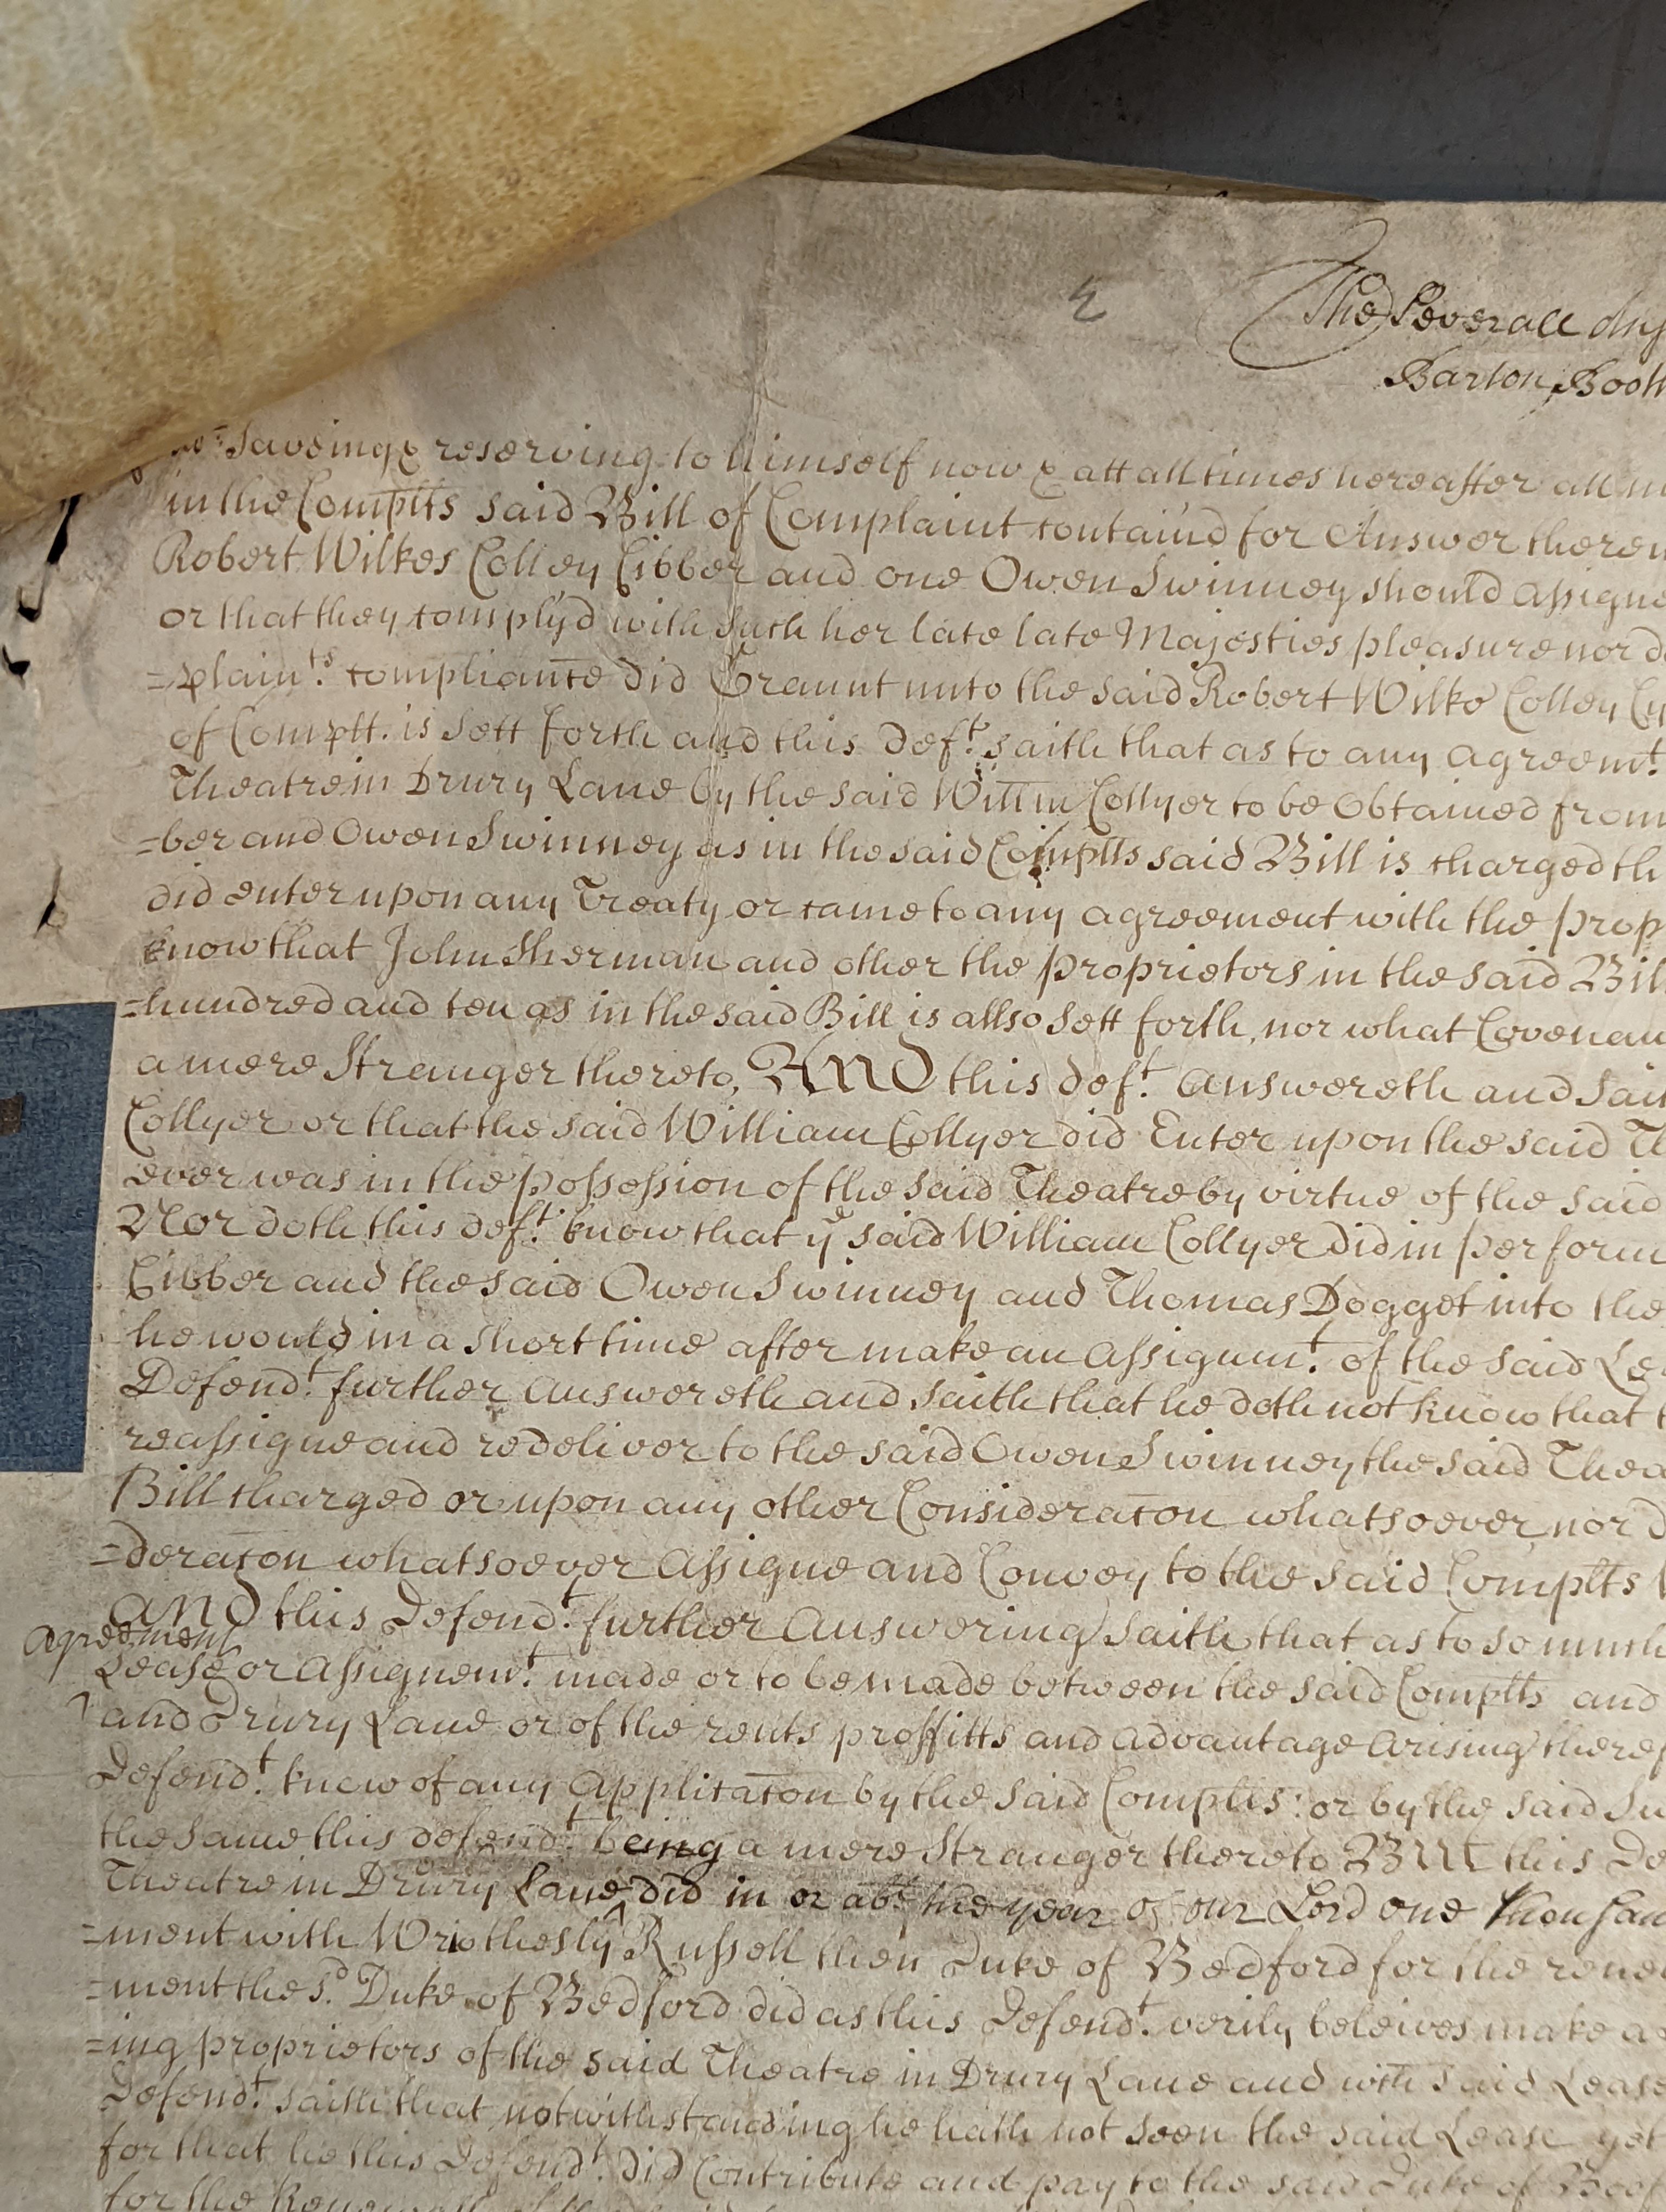 2
The Severall Ans
Barton Booth
Saveing & reserving to himself now & att all times hereafter all
in the Complts said Bill of Complaint containd for Answer thereun
Robert Wilkes Colley Cibber and one Owen Swinney should Assigne
or that they complyd with such her late late Majesties pleasure nor do
=plain.ts compliance did Graunt unto the said Robert Wilks Colley Cy
of Complt. is sett forth and this Def.t saith that as to any agreem.t
Theatre in Drury Lane by the said Willm Collyer to be Obtained from
=ber and Owen Swinney as in the said Complts said Bill is charged th
did enter upon any Treaty or came to any agreement with the prop
know that John Sherman and other the proprietors in the said Bill
=hundred and ten as in the said Bill is allso sett forth, nor what Covenan
a mere Stranger thereto, And this def.t Answereth and Sait
Collyer or that the said William Collyer did Enter upon the said Th
ever was in the possession of the said Theatre by virtue of the said
Nor doth this def.t know that ye said William Collyer did in perform
Cibber and the said Owen Swinney and Thomas Dogget into the
he would in a short time after make an Assignm.t of the said Lea
Defend.t further Answereth and saith that he doth not know that t
reassigne and redeliver to the said Owen Swinney the said Thea
Bill charged or upon any other Consideracon whatsoever nor d
=deracon whatsoever Assigne and Convey to the said Complts
And this Defend.t further Answering saith that as to so much
Agreement
Lease or Assignem.t made or to be made between the said Complts and
^ and Drury Lane or of the rents proffitts and Advantage Arising theref
Defend.t knew of any Applicacon by the said Complts: or by the said Su
the same this defend.t being a mere Stranger thereto But this De
Theatre in Drury Lane did in or abt. the year of our Lord one thousan
=ment with Wriothesly ^ Russell then Duke of Bedford for the rene
=ment the s.d Duke of Bedford did as this Defend.t verily beleives make a
=ing proprietors of the said Theatre in Drury Lane and wth said Lease
Defend.t saith that notwithstanding he hath not seen the said Lease yet
for that he this Defend.t did Contribute and pay to the said Duke of Bedf
for the Renewall of the